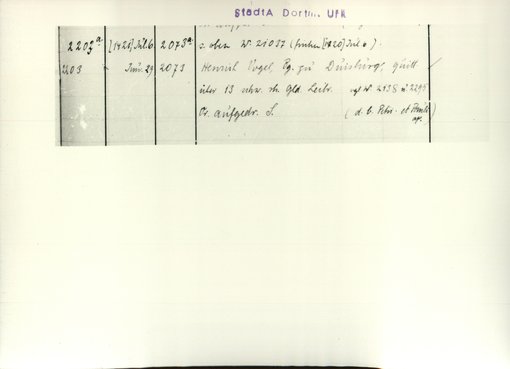 StadtA Dortm. Urk
2202a. [1420] Jul. 6. 2073a. s. oben N. 2103⁷ (früher [1420] Jul 6).
2203 Jun. 29 2073 Henrich Vogel, Bg. zu Duisburg, quitt
über 13 rh. Gld. Leibr. vgl N. 2138 u 2295
Or. aufgedr. S. (d. b. Petri et Pauli
ap.)